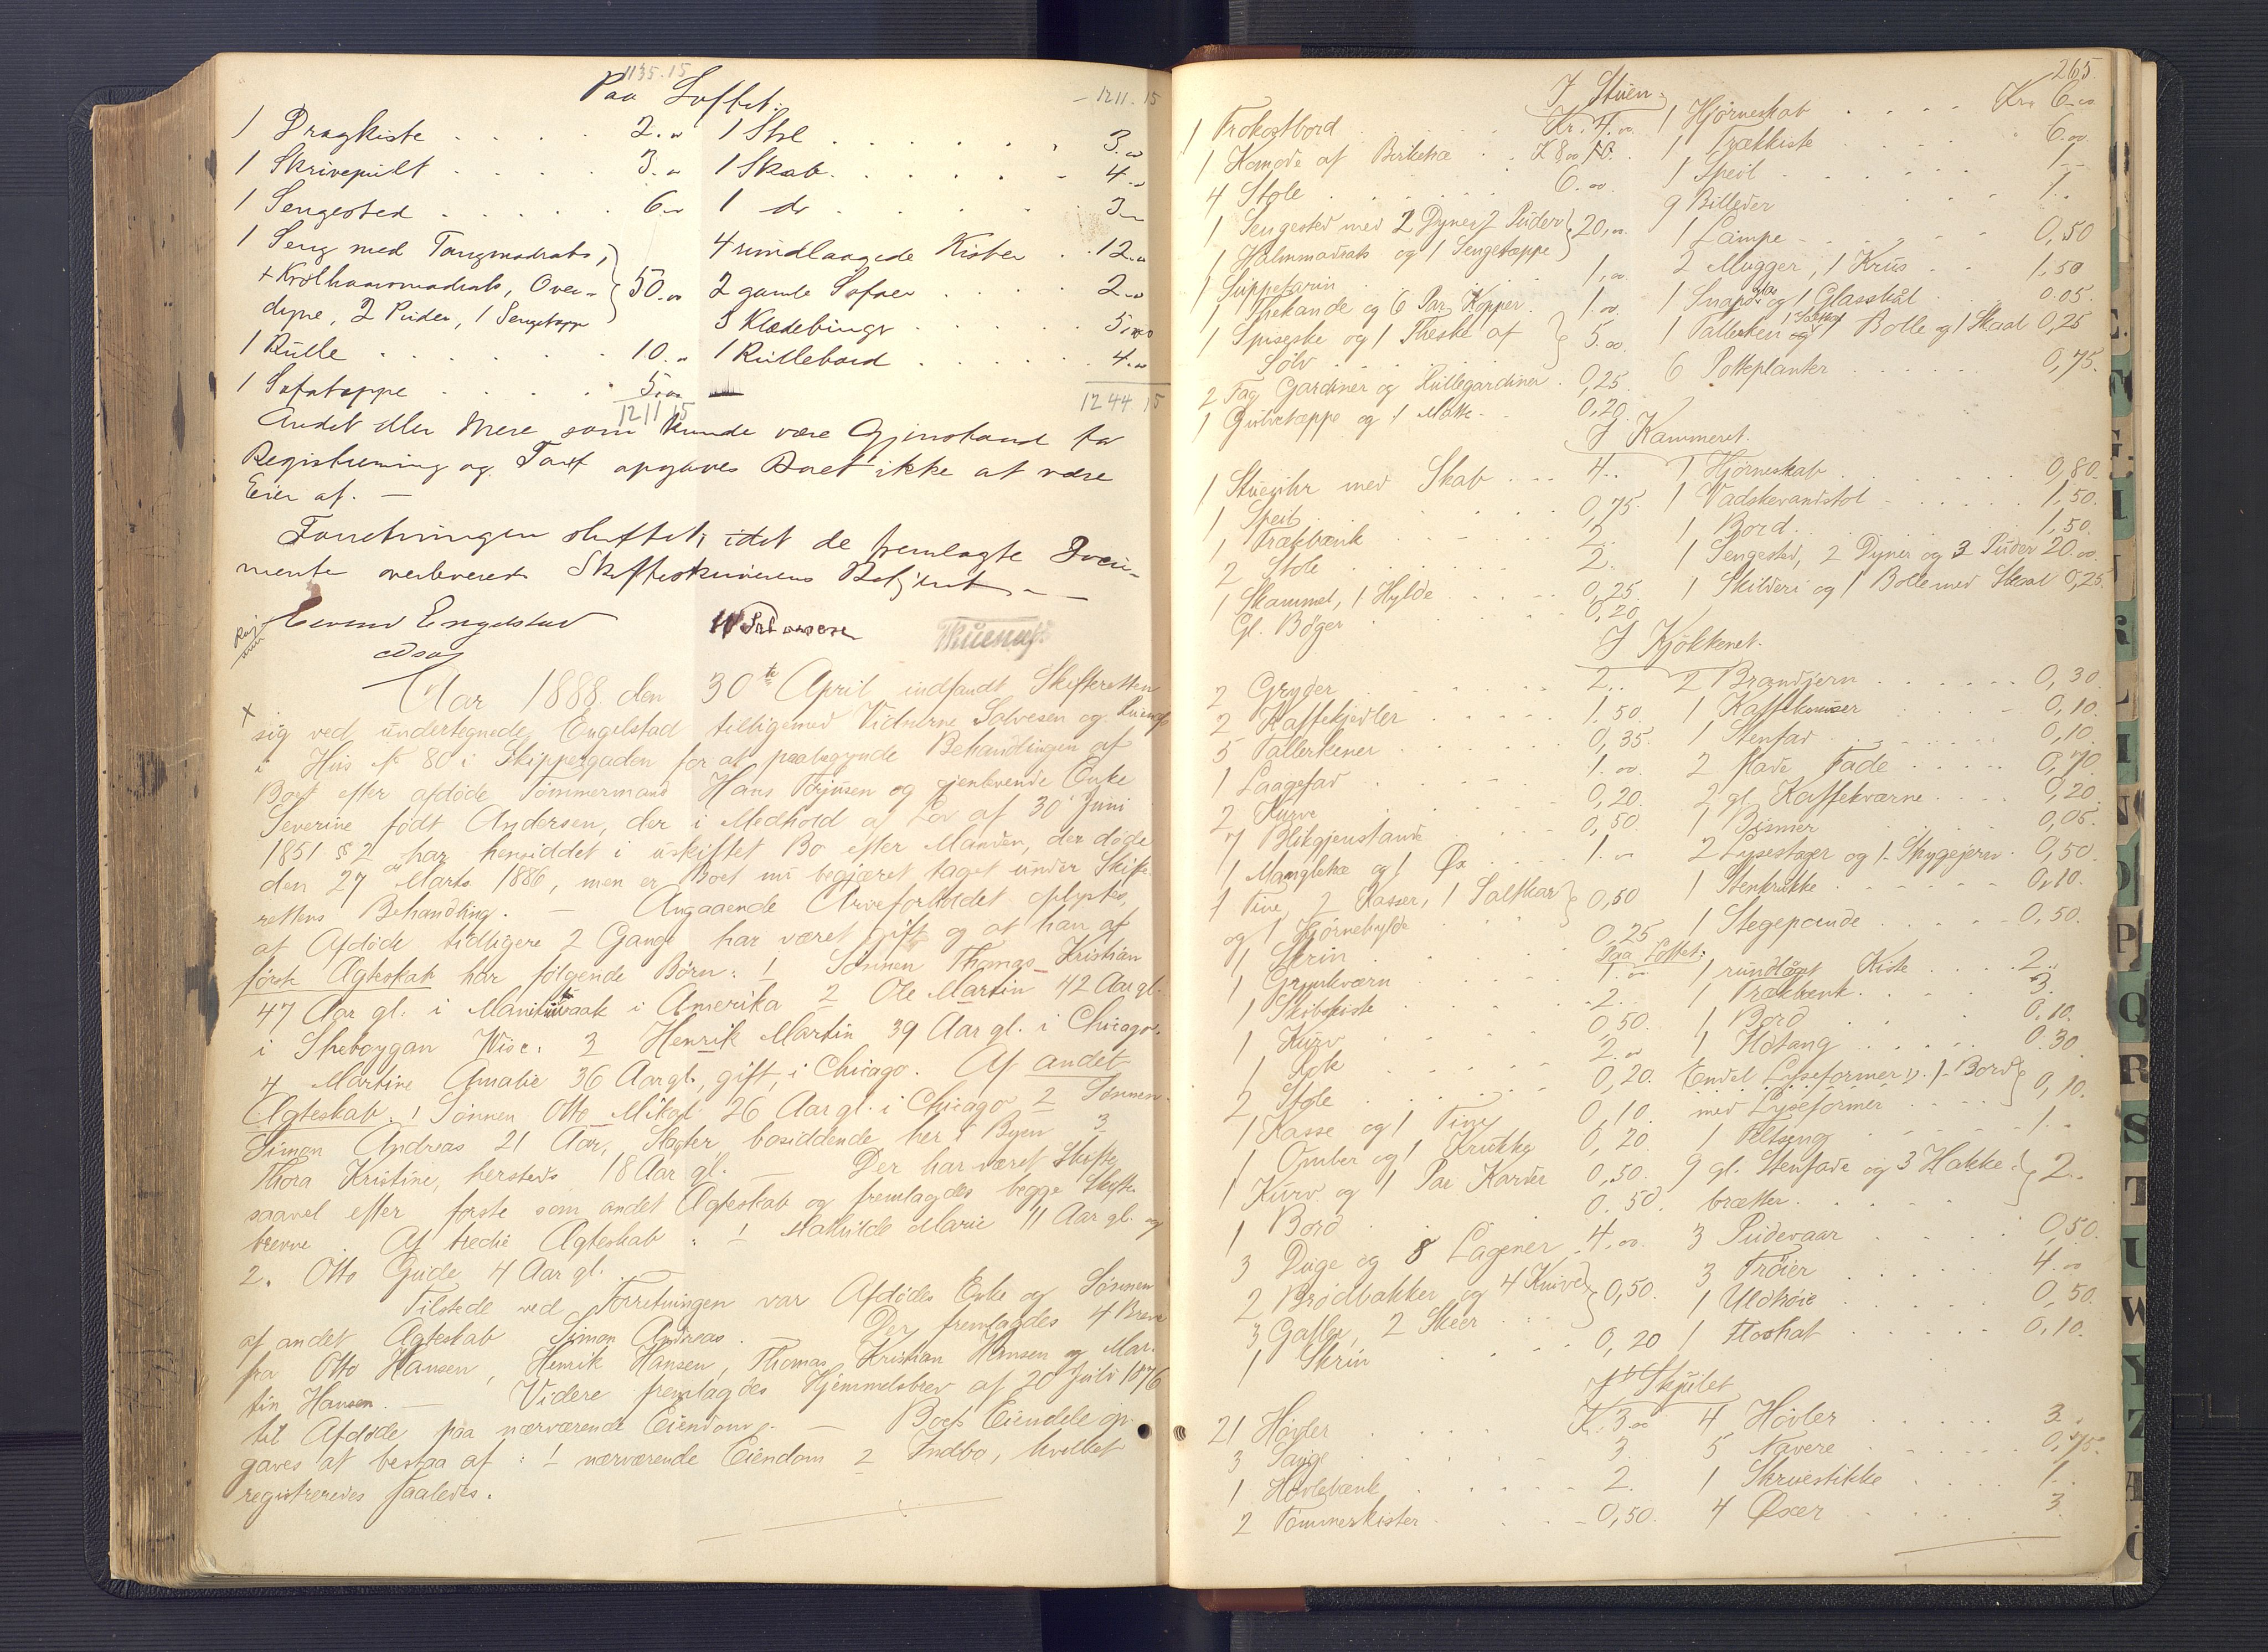 1135.15
Paa Loftet:
1211.15
1 Dragkiste 2.00 1 Stol 3.00
1 Skrivepult 3.00 1 Skab 4.00
1 Sengested 6.00 1 do 3.00
1 Seng med Tangmadrats, 4 rundlaagede Kister 12.00
+ Krølhaarsmadrats, Over- } 50.00 2 gamle Sofaer 2.00
dyne, 2 Puder, 1 Sengetæppe 3 Klædebinger 5.00
1 Rulle 10.00 1 Rullebord 4.00
1 Sofatæppe 5.00
1211 15 1244.15
Andet eller mere som kunde være Gjenstand for
Registrering og Taxt opgaves Boet ikke at være
Eier af. —
Forretningen sluttet, idet de fremlagte Docu-
menter overleveredes Skifteskriverens Betjent. —
Eivind Engelstad
Aar 1888 den 30te April indfandt Skifteretten
sig ved undertegnede Engelstad tilligemed Vidnerne Salvesen og
i Hus No 80 i Skippergaden for at paabegynde Behandlingen af
Boet efter afdøde Tømmermand Hans Terjusen og gjenlevende Enke
Severine født Andersen, der i Medhold af Lov af 30 Juni
1851 § 2 har hensiddet i uskiftet Bo efter Manden, der døde
den 27 Marts 1886, men er Boet nu begjæret taget under Skifte-
rettens Behandling. — Angaaende Arveforholdet oplystes,
at Afdøde tidligere 2 Gange har været gift og at han af
første Ægteskab har følgende Børn: 1 Sønnen Thomas Kristian
47 Aar gl. i Manitiwaak i Amerika 2 Ole Martin 42 Aar gl.
i Sheboygan Wisc. 3 Henrik Martin 39 Aar gl. i Chicago.
4 Martine Amalie 36 Aar gl., gift, i Chicago. Af andet
Ægteskab: 1 Sønnen Otto Mikal 26 Aar gl. i Chicago 2 Sønnen
Simon Andreas 21 Aar, Slagter, bosiddende her i Byen 3
Thora Kristine, hersteds 18 Aar gl. — Der har været Skifte
saavel efter første som andet Ægteskab og fremlagdes begge Skifte-
brevene. Af tredie Ægteskab: 1 Mathilde Marie 11 Aar gl. og
2. Otto Gude 4 Aar gl.
Tilstede ved Forretningen var Afdødes Enke og Sønnen
af andet Ægteskab Simon Andreas. Der fremlagdes 4 Breve
fra Otto Hansen, Henrik Hansen, Thomas Kristian Hansen og Mar-
tin Hansen. — Videre fremlagdes Hjemmelsbrev af 20 Juli 1876
til Afdøde paa nærværende Eiendom. — Boets Eiendele op-
gaves at bestaa af: 1 nærværende Eiendom 2 Indbo, hvilket
registreredes saaledes.
265.
I Stuen:
1 Frokostbord Kr. 4.00 1 Hjørneskab Kr. 6.00
1 Komode af Birketræ K 8.00 1 Trækkiste 6.00
4 Stole 6.00 1 Speil 1.-
1 Sengested med 2 Dyner 2 Puder } 20.00 9 Billeder 1..
1 Halmmadrats og 1 Sengetæppe 1 Lampe 0,50
1 Suppeterin 1.00 2 Mugger, 1 Krus 1.50
1 Thekande og 6 Par Kopper 1.00 1 Snapseglas og 1 Glasskål 0.05.
1 Spiseske og 1 Theske af } 5.00 1 Tallerken 1 Bolle og 1 Skaal 0,25
Sølv 6 Potteplanter 0,75.
2 Fag Gardiner og Rullegardiner 0,25
1 Gulvtæppe og 1 Matte 0,20.
I Kammeret.
1 Stueuhr med Skab 4.. 1 Hjørneskab 0,80.
1 Speil 0,75. 1 Vadskevandstol 1,50.
1 Trækbænk 2. 1 Bord 1,50.
2 Stole 2. 1 Sengested, 2 Dyner og 3 Puder 20.00
1 Skammel, 1 Hylde 0,25 1 Skilderi og 1 Bolle med Skaal 0,25.
Gl. Bøger 0,20
I Kjøkkenet.
2 Gryder 2.. 2 Brandjern 0,30
2 Kaffekjedler 1.50 1 Kaffekanner 0,10.
5 Tallerkener 0,35. 1 Stenfad 0,10.
1 Laagefad 1.00 2 Made Fade 0,70
2 Kurve 0,20. 2 gl. Kaffekværne 0,20
7 Blikgjenstande 0,50. 1 Bismer 0,05.
1 Mangletræ og 1 Øx 1.00 2 Lysestager og 1 Strygejern 0,50.
1 Tine 2 Kasser, 1 Saltkar } 0,50 1 Stenkrukke 0,10.
og 1 Hjørnehylde 1 Stegepande 0,50.
1 Skrin 0,25
Paa Loftet:
1 Grynkværn 1.00 1 rundlåget Kiste 2..
1 Skibskiste 2. 1 Trækbænk 3.
1 Kurv 0,50. 1 Bord 0.10.
1 Rok 2.00 1 Ildtang 0.30
2 Stole 0,20. Endel Lyseformer 1 Bord } 0,10.
1 Kasse og 1 Tine 0,10. med Lyseformer
1 Omber og 1 Krukke 0,20 1 Feltseng 1..
1 Kurv og 1 Par Karder 0,50. 9 gl. Stenfade og 3 Hakke- } 2..
1 Bord 0.50. brætter
3 Duge og 8 Lagener 4.00 3 Pudevaar 0,50.
2 Brødbakker og 4 Knive } 0,50. 3 Trøier 4.00
3 Gafler, 2 Skeer 1 Uldtrøie 0,50.
1 Skrin 0,20 1 Floshat 0,10.
I Skjulet
21 Høvler K. 3.00 4 Høvler 3.
3 Sauge 3. 5 Navere 0,75.
1 Høvlebænk 2. 1 Skruestikke 1..
2 Tømmerkister 0,50. 4 Øxer 3.
E.
F
G
H
I
L
N
O
P
Q
R
S
T
U
W
Y
Z
Æ
Ö